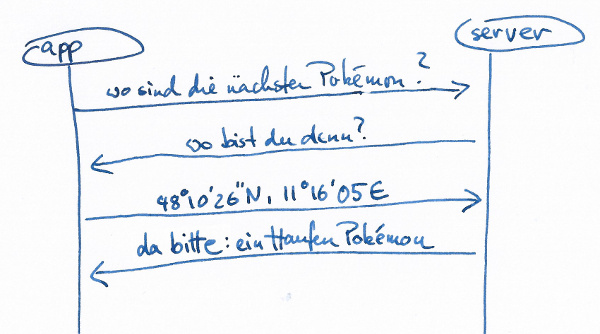 app
server
wo sind die nächsten Pokémon?
wo bist du denn?
48°10'26"N, 11°16'05E
da bitte: ein Haufen Pokémon